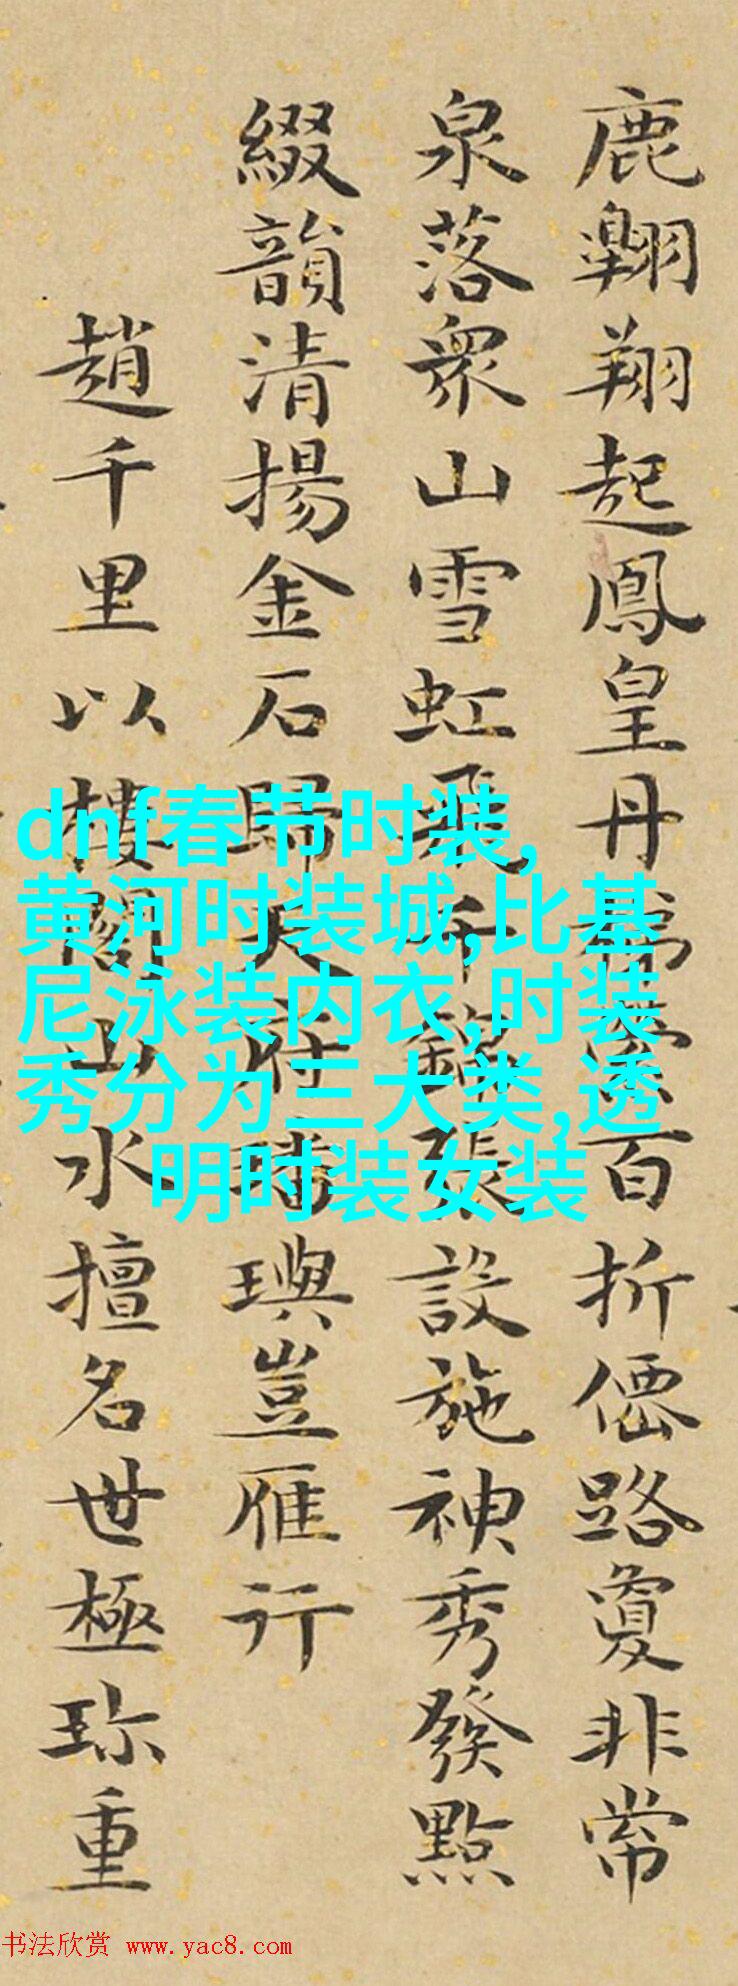 鹿翺翔起鳳皇丹百折僊路敻非常
泉落衆山雪虹飛千錦張設施神秀發點
綴韻清揚金石歸天府璠璵豈雁行
趙千里以樓閣山水擅名世極珎重
dnf春节时装,
黄河时装城,比基
尼泳装内衣,时装
秀分为三大类,透
明时装女装
书法欣赏 www.yac8.com